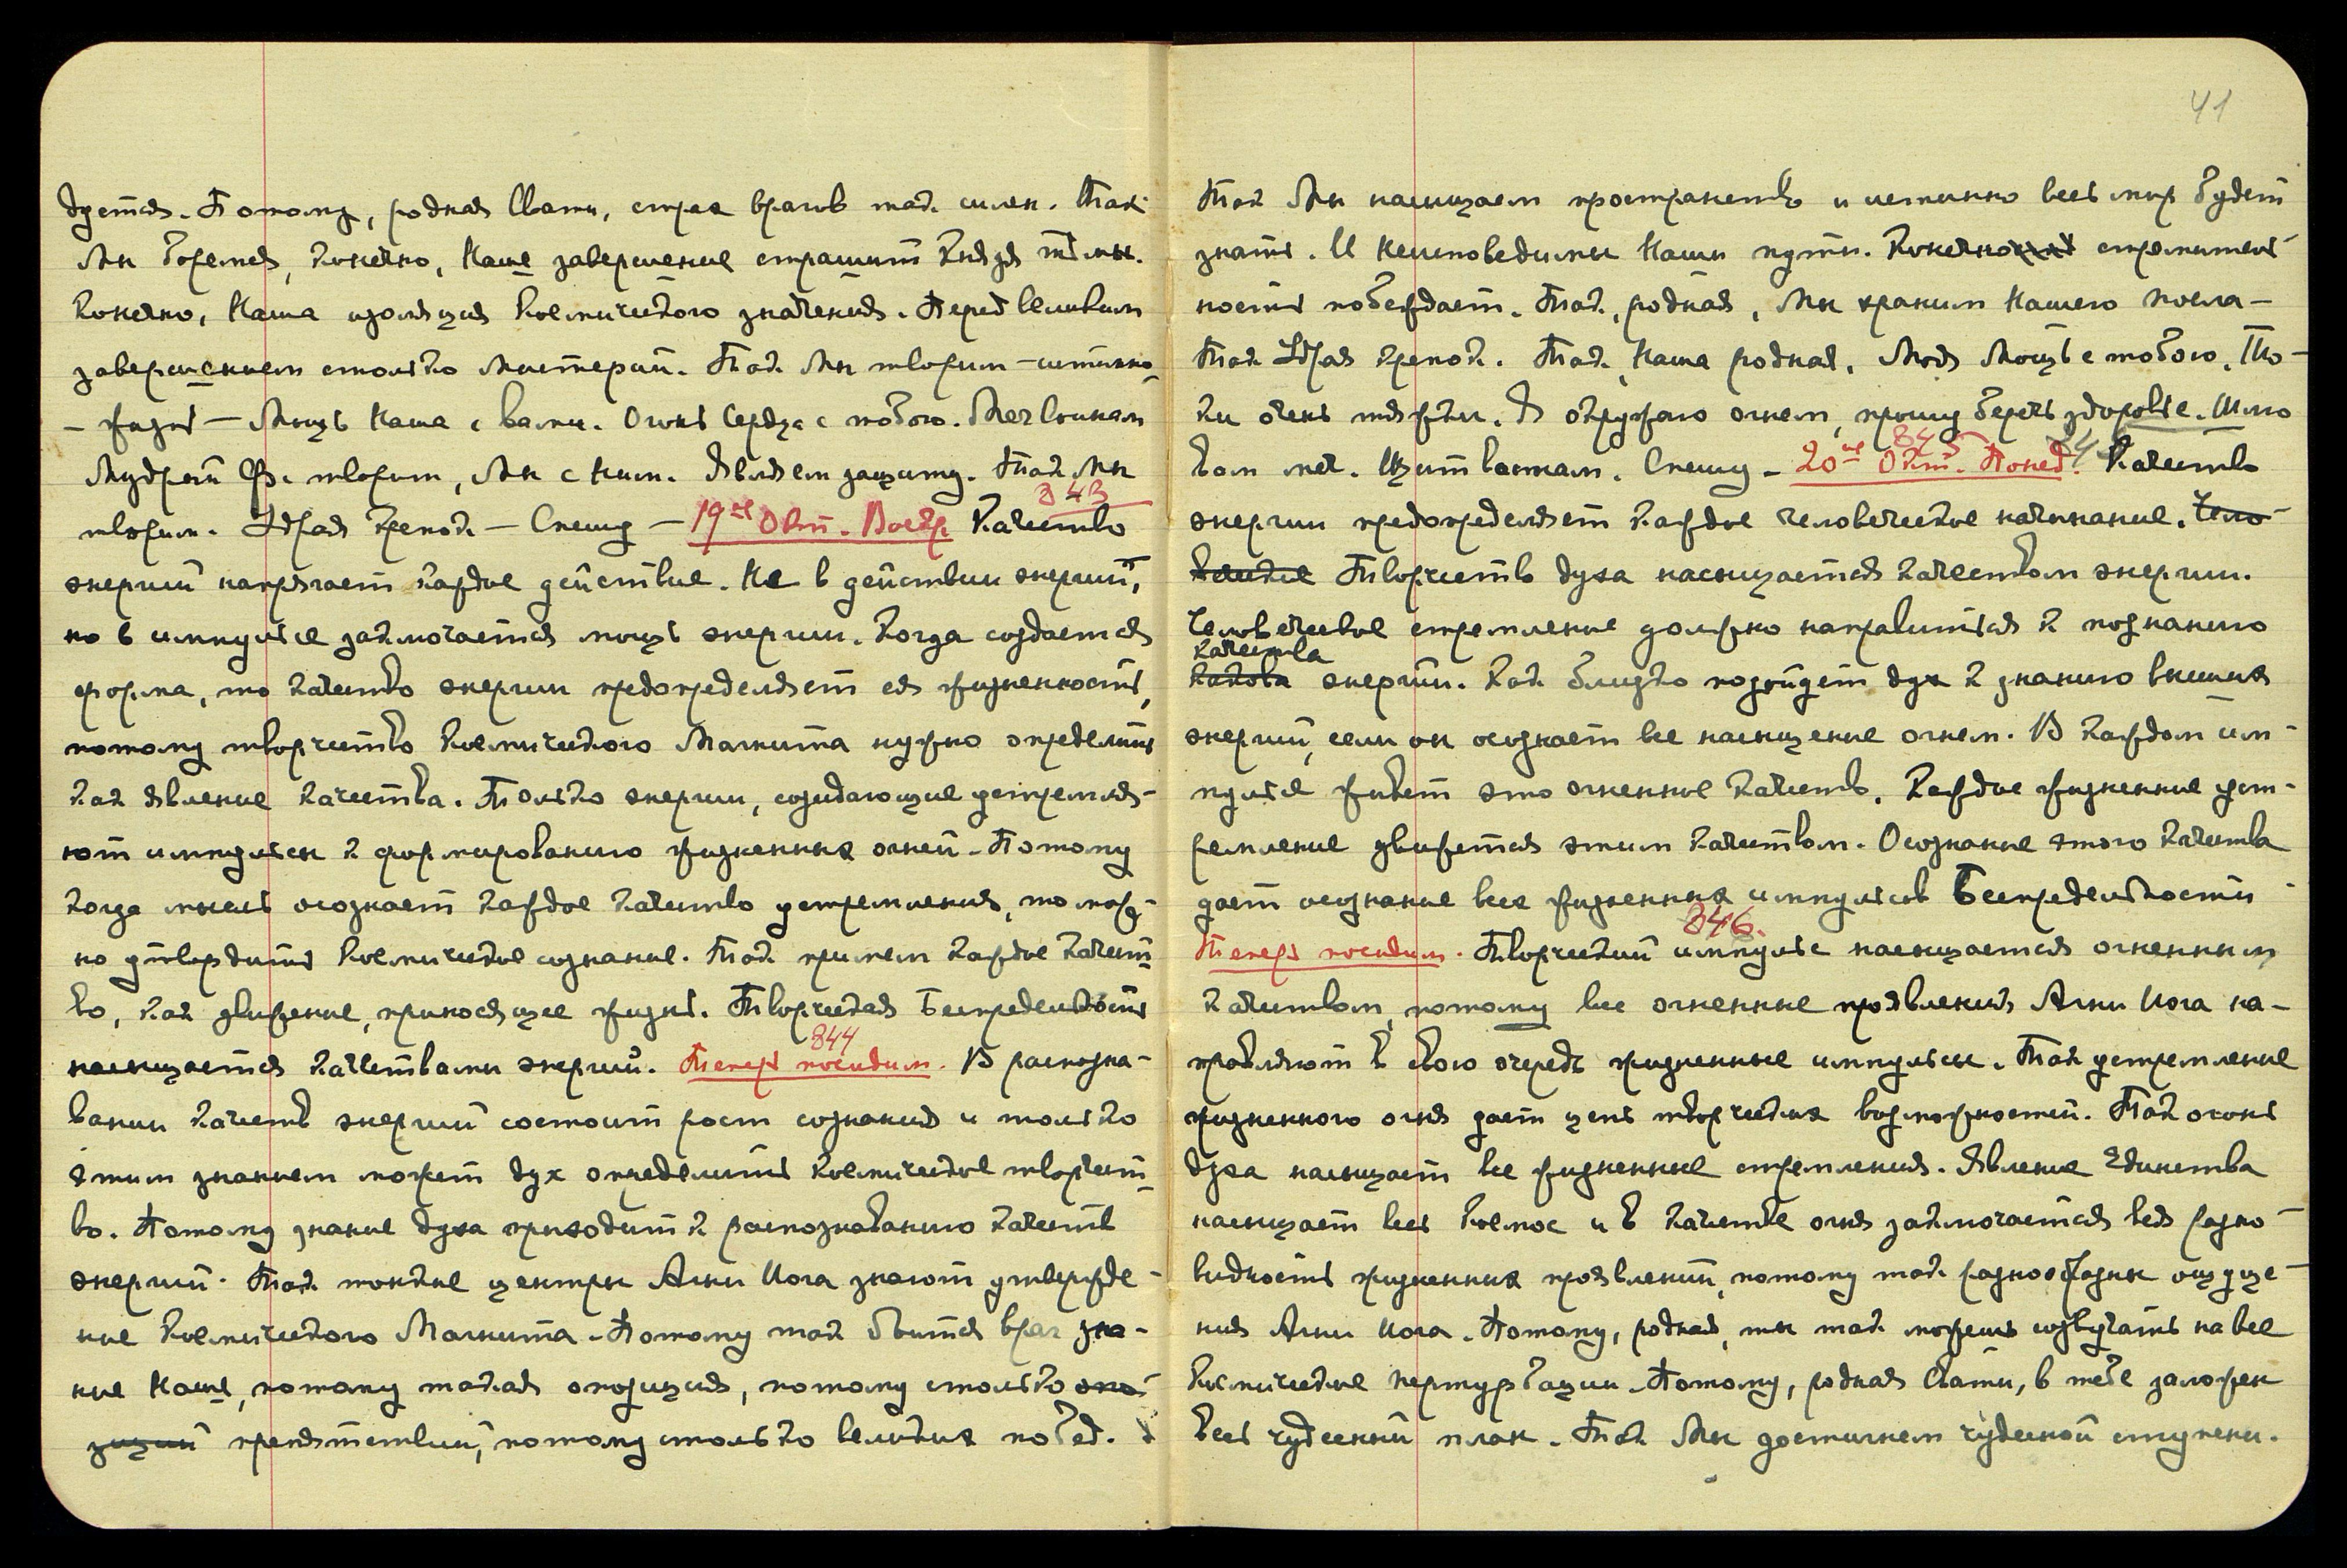 дуется. Потому, родная Свати, страх врагов так силен. Так
Мы боремся, конечно, Наше завершение страшит Князя тьмы.
Конечно, Наша изоляция космического значения. Перед великим
завершением столько мистерий. Так Мы творим — истинно
— жизнь — Мощь Наша с вами. Огонь Сердца с тобою. Меч воинам
Мудрый Ф. творит, Мы с Ним. Являем защиту. Так Мы
843
творим. Удрая крепок — Спешу — 19ое Окт. Воскр Качество
энергий напрягает каждое действие. Не в действии энергий,
но в импульсе заключается мощь энергии. Когда создается
форма, то качество энергии предопределяет ея жизненность,
потому творчество Космического Магнита нужно определить
как явление качества. Только энергии, созидающие устремля-
ют импульсы к формированию жизненных огней. Потому
когда мысль осознает каждое качество устремления, то мож-
но утвердить космическое сознание. Так примем каждое качест
во, как движение, приносящее жизнь. Творческая Беспредельность
844
насыщается качествами энергий. Теперь посидим. В распозна-
вании качеств энергий состоит рост сознания и только
этим знанием может дух определить космическое творчест
во. Потому знание духа приходит к распознованию качеств
энергий. Так тонкие центры Агни Йога знают утвержде-
ние Космического Магнита. Потому так боится враг зна-
ние Наше, потому такая опозиция, потому столько опо
зиций препятствий, потому столько великих побед.
41
Так Мы насыщаем пространство и истинно весь мир будет
знать. И неисповедимы Наши пути. Конечно стремитель
ность побеждает. Так, родная, Мы храним Нашего посла —
так Удрая крепок. Так, Наша родная, Моя Мощь с тобою. То-
ки очень тяжки. Я окружаю огнем, прошу беречь здоровье. Шлю
845
вам меч. Щит вам. Спешу — 20ое Окт. Понед. Качество
энергии предопределяет каждое человеческое начинание. Чело
веческое Творчество духа насыщается качеством энергии.
Человеческое стремление должно направиться к познанию
качества
какова энергий. Как близко подойдет дух к знанию высших
энергий, если он осознает все насыщение огнем. В каждом им-
пульсе живет это огненное качество. Каждое жизненное уст-
ремление движется этим качеством. Осознание этого качества
дает осознание всех жизненных импульсов Беспредельности
846.
Теперь посидим. Творческий импульс насыщается огненным
качеством, потому все огненные проявления Агни Йога на-
правляют в свою очередь жизненные импульсы. Так устремление
жизненного огня дает цепь творческих возможностей. Так огонь
духа насыщает все жизненные стремления. Явление Единства
насыщает весь Космос и в качестве огня заключается вся разно
видность жизненных проявлений, потому так разнообразны ощуще-
ния Агни Йога. Потому, родная, ты так можешь созвучать на все
космические пертурбации. Потому, родная Свати, в тебе заложен
весь чудесный план. Так Мы достигнем чудесной ступени.